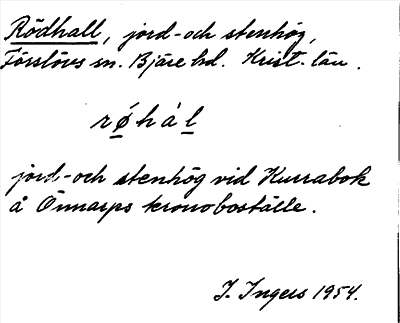 Rödhall, jord- och stenhög,
Förslövs sn. Bjäre hd. Krist. län.
rǿhàl
jord- och stenhög vid Kurrabok
å Önnarps kronoboställe.
I. Ingers 1954.